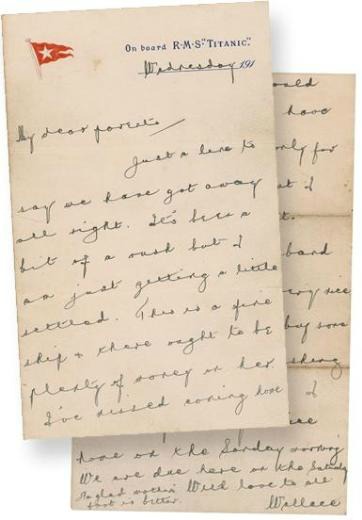 On board R·M·S "TITANIC."
Wednesday 191
My dear parents
Just a line to
say we have got away
all right. It's been a
bit of a rush but I
am just getting a little
settled. This is a fine
ship & there ought to be
plenty of money on her.
I've missed coming home
have
only for
I
band
very nice
buy some
I
home on the Sunday morning
We are due here on the Saturday
glad mother's With love to all
foot is better.
Wallace